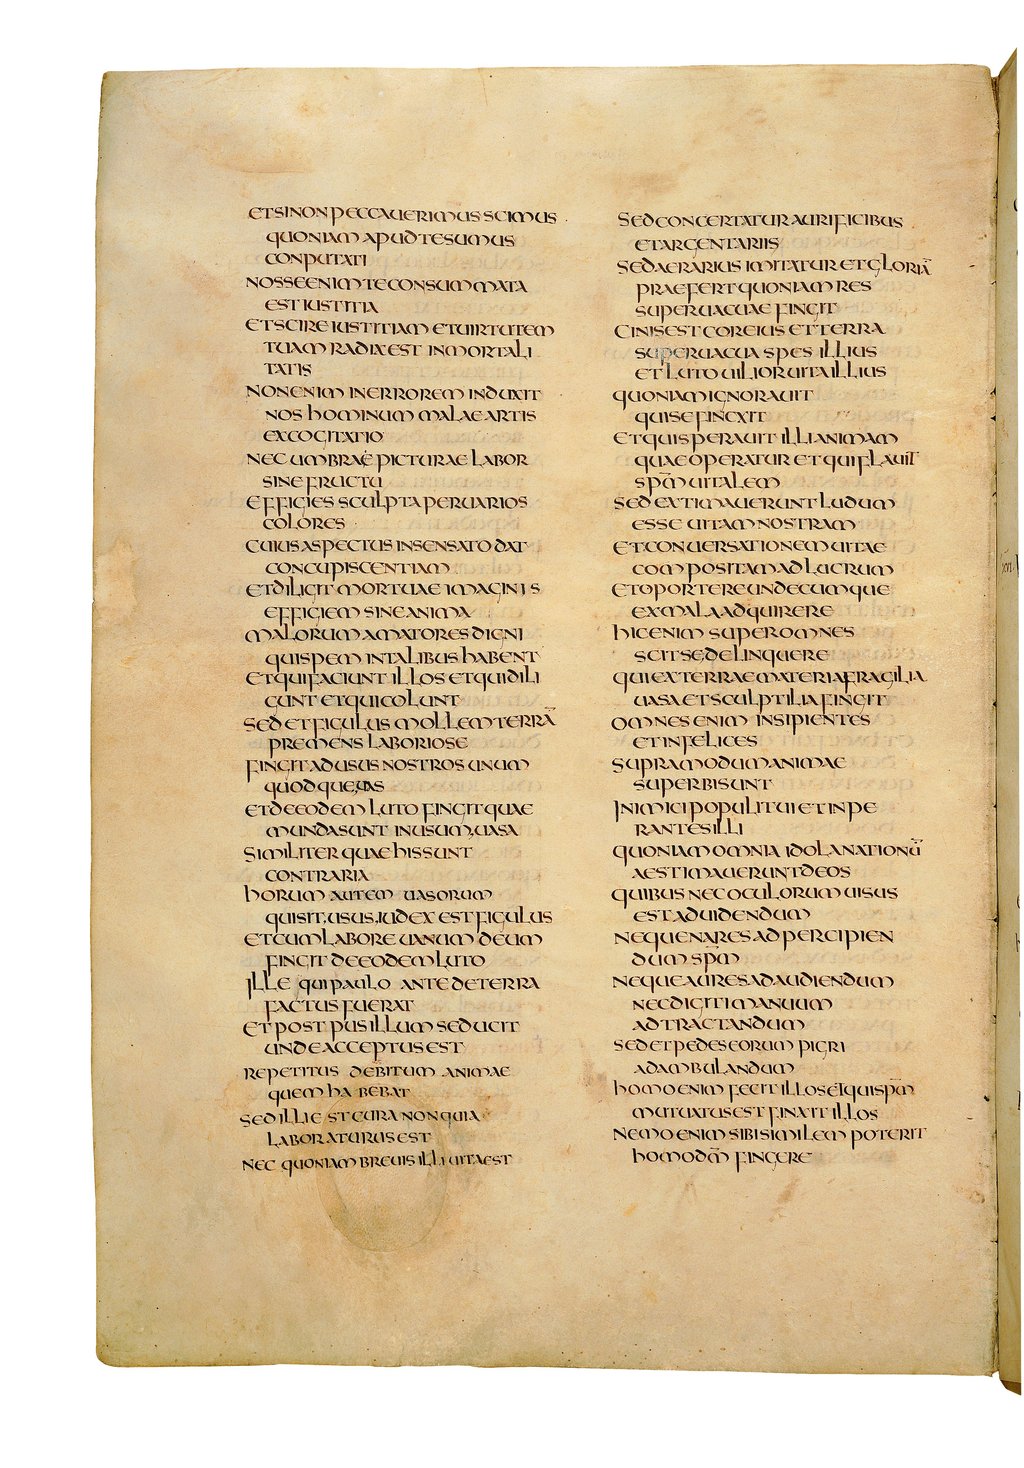 ET SI NON PECCAUERIMUS SCIMUS
QUONIAM APUD TE SUMUS
CONPUTATI
NOSSE ENIM TE CONSUMMATA
EST IUSTITIA
ET SCIRE IUSTITIAM ET UIRTUTEM
TUAM RADIX EST INMORTALI
TATIS
NON ENIM IN ERROREM INDUXIT
NOS HOMINUM MALAE ARTIS
EXCOGITATIO
NEC UMBRAE PICTURAE LABOR
SINE FRUCTU
EFFIGIES SCULPTA PER UARIOS
COLORES
CUIUS ASPECTUS INSENSATO DAT
CONCUPISCENTIAM
ET DILIGIT MORTUAE IMAGINIS
EFFIGIEM SINE ANIMA
MALORUM AMATORES DIGNI
QUI SPEM IN TALIBUS HABENT
ET QUI FACIUNT ILLOS ET QUI DILI
GUNT ET QUI COLUNT
SED ET FIGULUS MOLLEM TERRĀ
PREMENS LABORIOSE
FINGIT AD USUS NOSTROS UNUM
QUODQUE UAS
ET DE EODEM LUTO FINGIT QUAE
MUNDA SUNT IN USUM UASA
SIMILITER QUAE HIS SUNT
CONTRARIA
HORUM AUTEM UASORUM
QUI SIT USUS IUDEX EST FIGULUS
ET CUM LABORE UANUM DEUM
FINGIT DE EODEM LUTO
ILLE QUI PAULO ANTE DE TERRA
FACTUS FUERAT
ET POST PUSILLUM SE DUCIT
UNDE ACCEPTUS EST
REPETITUS DEBITUM ANIMAE
QUEM HABEBAT
SED ILLI EST CURA NON QUIA
LABORATURUS EST
NEC QUONIAM BREUIS ILLI UITA EST
SED CONCERTATUR AURIFICIBUS
ET ARGENTARIIS
SED AERARIUS IMITATUR ET GLORIĀ
PRAEFERT QUONIAM RES
SUPERUACUAE FINGIT
CINIS EST COR EIUS ET TERRA
SUPERUACUA SPES ILLIUS
ET LUTO UILIOR UITA ILLIUS
QUONIAM IGNORAUIT
QUI SE FINCXIT
ET QUI SPERAUIT ILLI ANIMAM
QUAE OPERATUR ET QUI FLAUIT
SPM̄ UITALEM
SED EXTIMAUERUNT LUDUM
ESSE UITAM NOSTRAM
ET CONUERSATIONEM UITAE
COMPOSITAM AD LUCRUM
ET OPORTERE UNDECUMQUE
EX MALA ADQUIRERE
HIC ENIM SUPER OMNES
SCIT SE DELINQUERE
QUI EX TERRAE MATERIA FRAGILIA
UASA ET SCULPTILIA FINGIT
OMNES ENIM INSIPIENTES
ET INFELICES
SUPRA MODUM ANIMAE
SUPERBI SUNT
INIMICI POPULI TUI ET INPE
RANTES ILLI
QUONIAM OMNIA IDOLA NATIONŪ
AESTIMAUERUNT DEOS
QUIBUS NEC OCULORUM UISUS
EST AD UIDENDUM
NEQUE NARES AD PERCIPIEN
DUM SPM̄
NEQUE AURES AD AUDIENDUM
NEC DIGITI MANUUM
AD TRACTANDUM
SED ET PEDES EORUM PIGRI
AD AMBULANDUM
HOMO ENIM FECIT ILLOS ET QUI SPM̄
MUTUATUS EST FINXIT ILLOS
NEMO ENIM SIBI SIMILEM POTERIT
HOMO DM̄ FINGERE